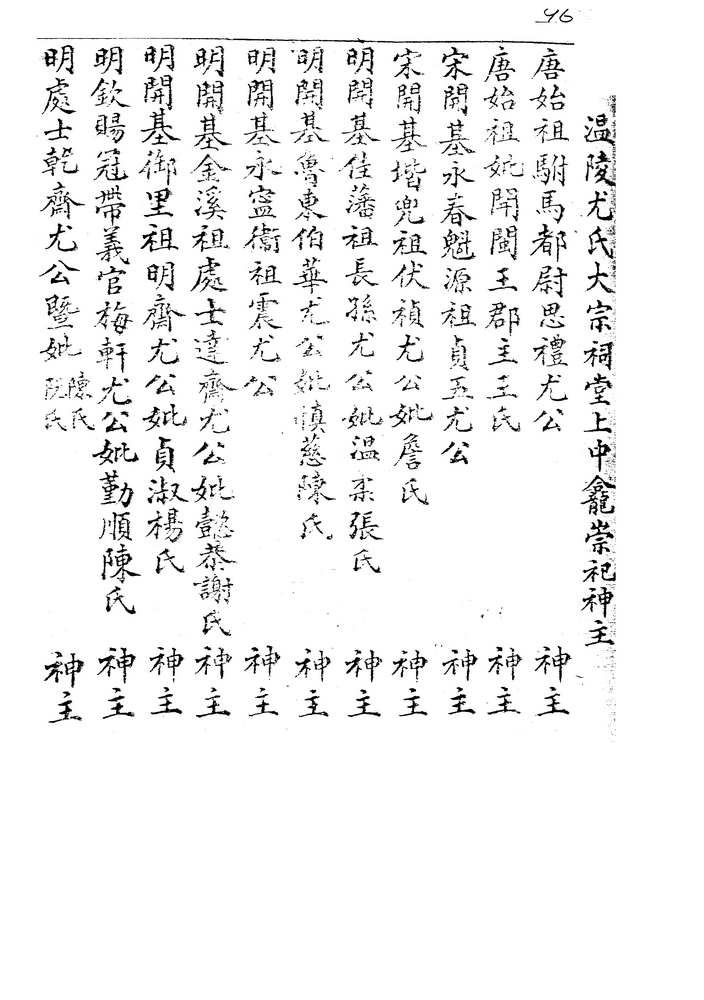 96
温陵尤氏大宗祠堂上中龕崇祀神主
唐始祖駙馬都尉思禮尤公 神主
唐始祖妣開閩王郡主王氏 神主
宋開基永春魁源祖貞五尤公 神主
宋開基堦兜祖伏禎尤公妣詹氏 神主
明開基佳藩祖長孫尤公妣温柔張氏 神主
明開基魯東伯華尤公妣慎慈陳氏 神主
明開基永寧衞祖震尤公 神主
明開基金溪祖處士達齋尤公妣懿恭謝氏 神主
明開基御里祖明齋尤公妣貞淑楊氏 神主
明欽賜冠帶義官梅軒尤公妣勤順陳氏 神主
明處士乾齋尤公暨妣陳氏阮氏 神主